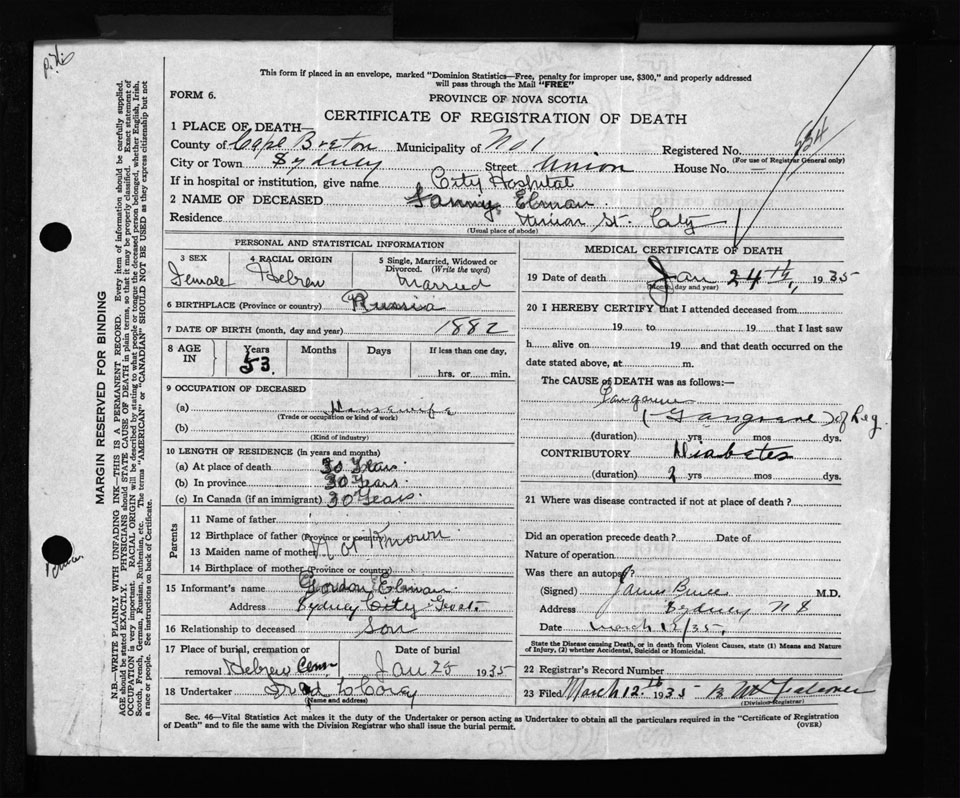 This form if placed in an envelope, marked "Dominion Statistics—Free, penalty for improper use, $300," and properly addressed
will pass through the Mail "FREE"
FORM 6.
PROVINCE OF NOVA SCOTIA
CERTIFICATE OF REGISTRATION OF DEATH
1 PLACE OF DEATH—
County of Cape Breton Municipality of No 1 Registered No. 554
(For use of Registrar General only)
City or Town Sydney Street Union House No. —
If in hospital or institution, give name City Hospital
2 NAME OF DECEASED Fanny Elman
Residence Union St. City
(Usual place of abode)
PERSONAL AND STATISTICAL INFORMATION
3 SEX 4 RACIAL ORIGIN 5 Single, Married, Widowed or
Divorced. (Write the word)
Female Hebrew Married
6 BIRTHPLACE (Province or country) Russia
7 DATE OF BIRTH (month, day and year) 1882
8 AGE IN Years Months Days If less than one day,
53. hrs. or min.
9 OCCUPATION OF DECEASED
(a) Housewife
(Trade or occupation or kind of work)
(b)
(Kind of industry)
10 LENGTH OF RESIDENCE (in years and months)
(a) At place of death 30 Years.
(b) In province 30 Years.
(c) In Canada (if an immigrant) 30 Years.
Parents
11 Name of father
12 Birthplace of father (Province or country)
Not Known
13 Maiden name of mother
14 Birthplace of mother (Province or country)
15 Informant's name Gordon Elman
Address Sydney City
16 Relationship to deceased Son
17 Place of burial, cremation or Date of burial
removal Hebrew Cem Jan 25 1935
18 Undertaker
(Name and address)
MEDICAL CERTIFICATE OF DEATH
19 Date of death Jan 24th, 1935
(Month, day and year)
20 I HEREBY CERTIFY that I attended deceased from
19 to 19 that I last saw
h alive on 19 and that death occurred on the
date stated above, at m.
The CAUSE of DEATH was as follows:—
(Gangrene) of Leg.
(duration) yrs. mos. dys.
CONTRIBUTORY Diabetes
(duration) yrs. mos. dys.
21 Where was disease contracted if not at place of death?
Did an operation precede death? Date of
Nature of operation
Was there an autopsy?
(Signed) James Bruce M.D.
Address Sydney N S
Date March 12/35,
State the Disease causing Death, or in death from Violent Causes, state (1) Means and Nature
of Injury, (2) whether Accidental, Suicidal or Homicidal.
22 Registrar's Record Number
23 Filed March 12th 1935
(Division Registrar)
Sec. 46—Vital Statistics Act makes it the duty of the Undertaker or person acting as Undertaker to obtain all the particulars required in the "Certificate of Registration
of Death" and to file the same with the Division Registrar who shall issue the burial permit. (OVER)
MARGIN RESERVED FOR BINDING
N.B.—WRITE PLAINLY WITH UNFADING INK—THIS IS A PERMANENT RECORD. Every item of information should be carefully supplied.
AGE should be stated EXACTLY. PHYSICIANS should STATE CAUSE OF DEATH in plain terms, so that it may be properly classified. Exact statement of
OCCUPATION is very important. RACIAL ORIGIN will be described by stating to what people or tongue the deceased person belonged, whether English, Irish,
Scotch, French, German, Russian, Ruthenian, etc. The terms "AMERICAN" or "CANADIAN" SHOULD NOT BE USED as they express citizenship but not
a race or people. See instructions on back of Certificate.